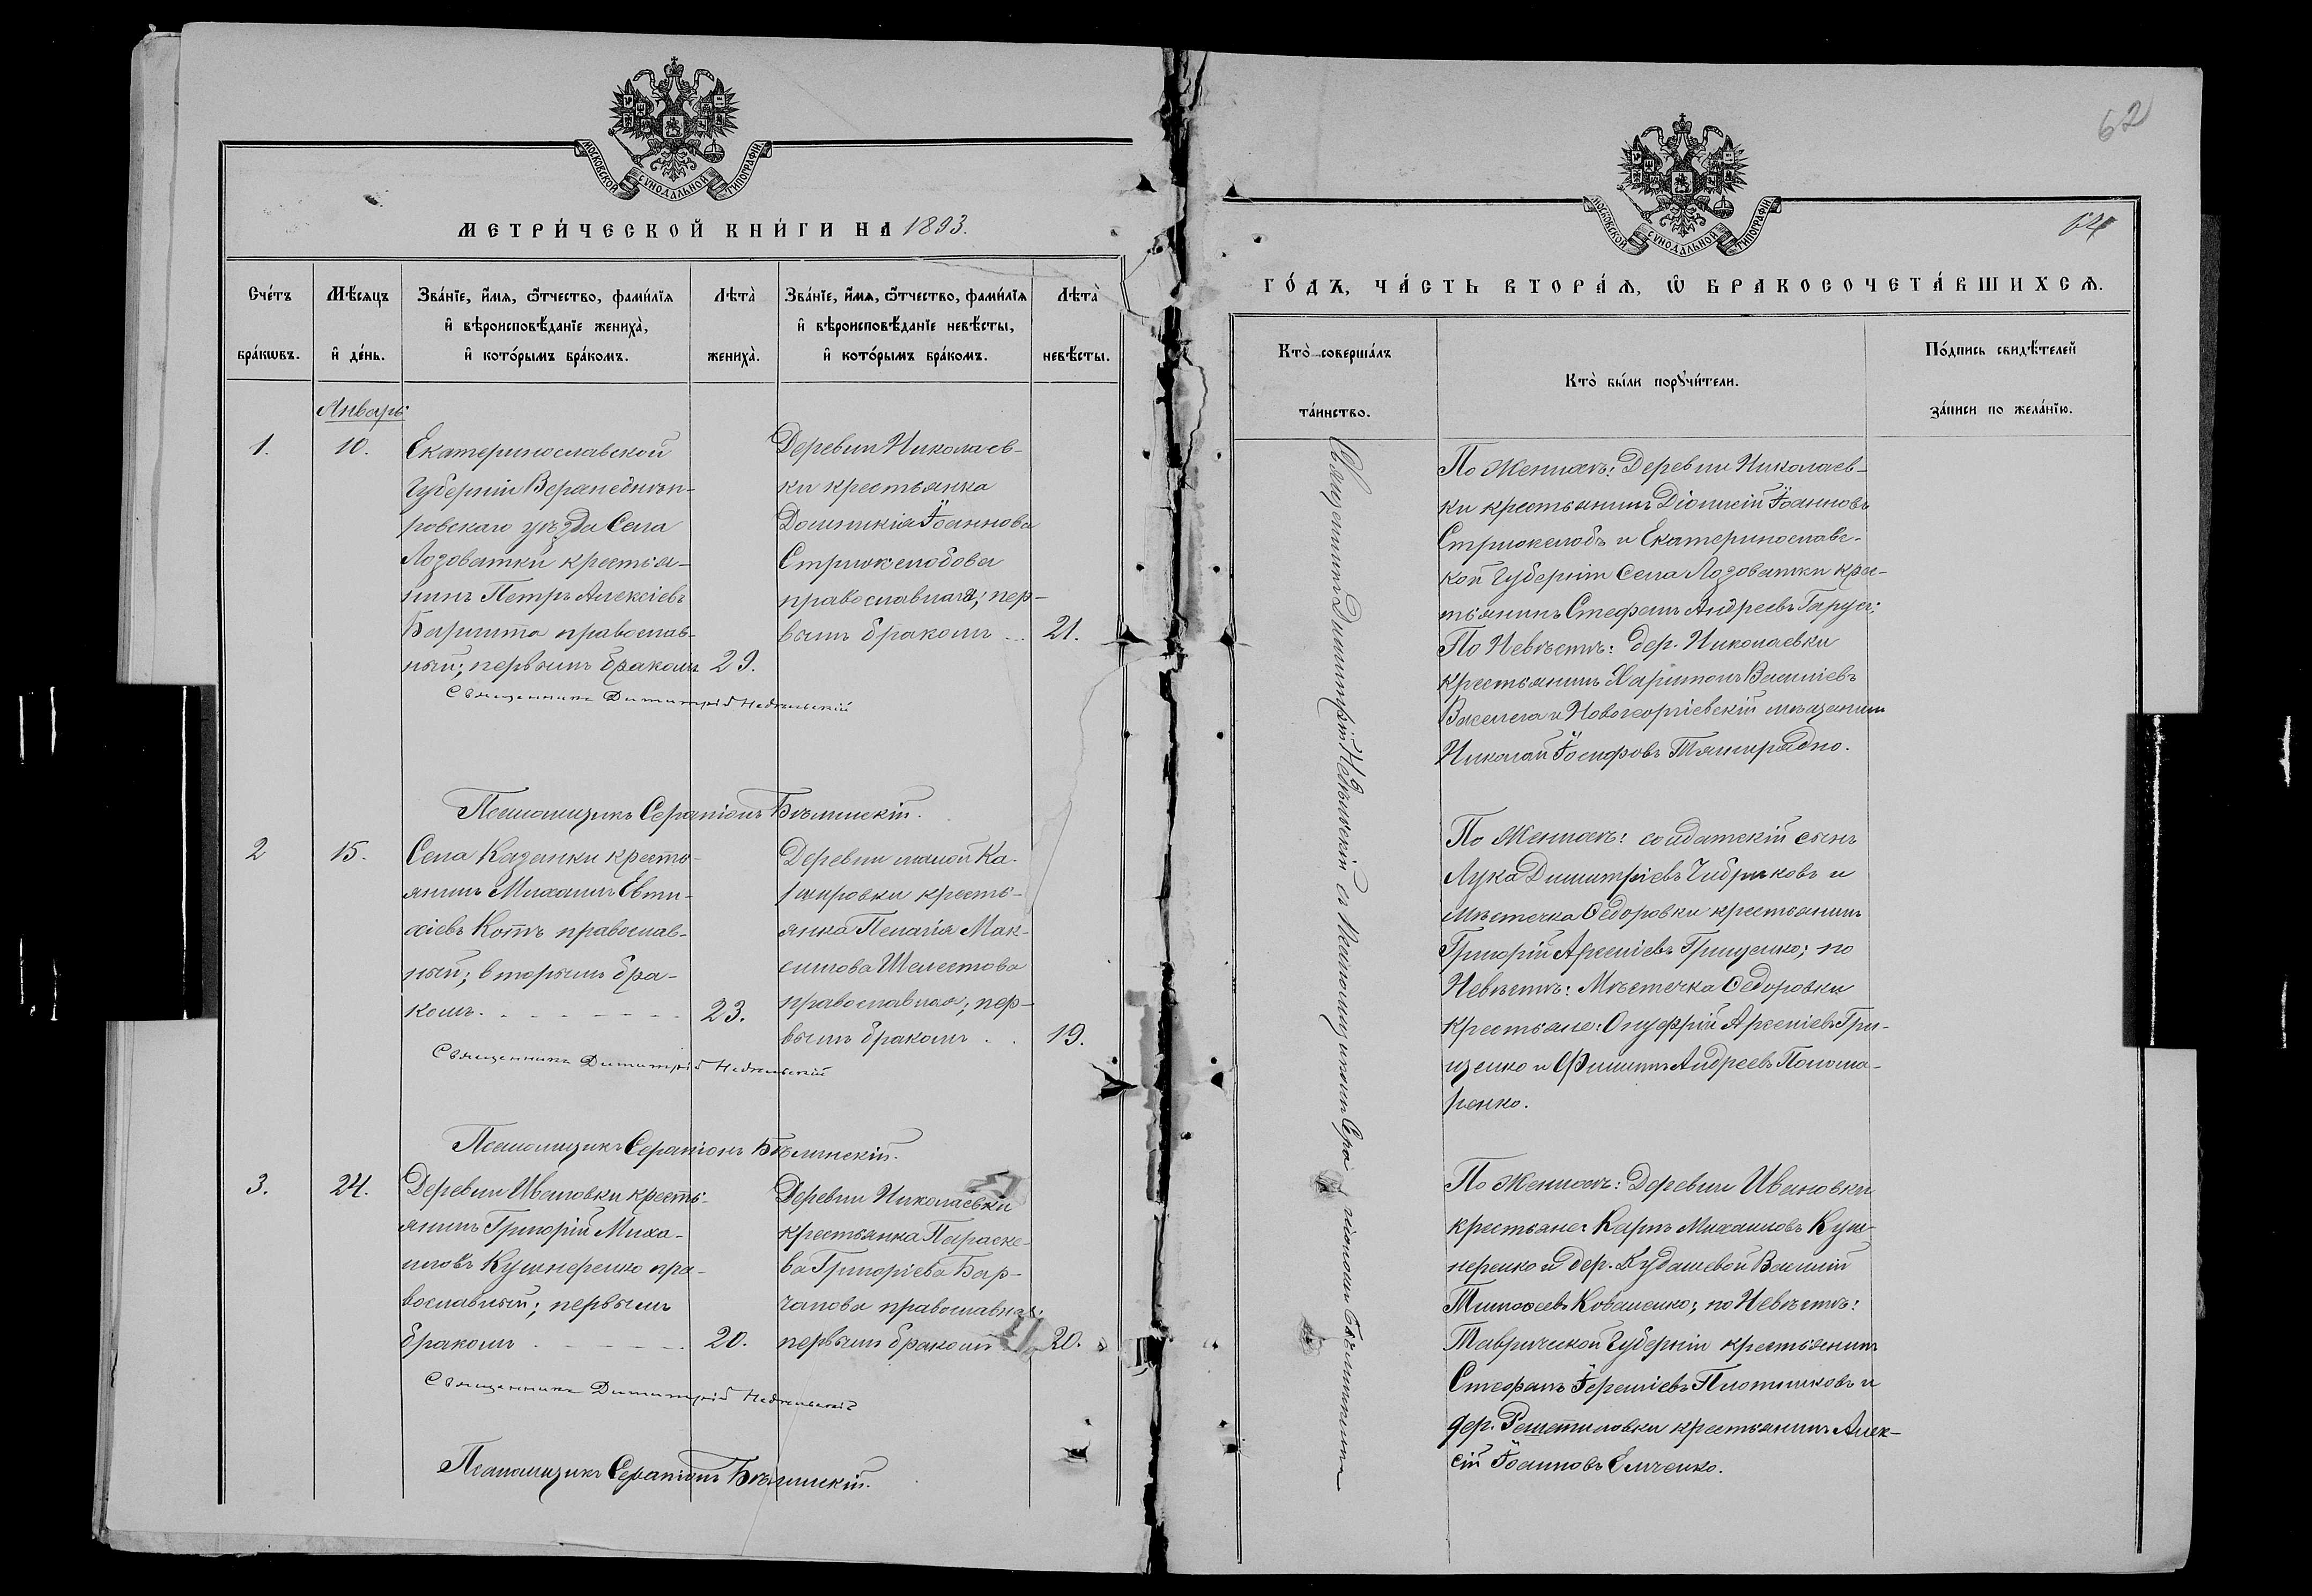 МОСКОВСКОЙ СѴНОДАЛЬНОЙ ТИПОГРАФІИ
МЕТРИ́ЧЕСКОЙ КНИ́ГИ НА 1893.
Сче́тъ бра́кѡвъ.
Мѣ́сяцъ и҆ де́нь.
Зва́нїе, и҆́мѧ, ѻ҆́тчество, фами́лїѧ и҆ вѣроисповѣ́данїе жениха̀, и҆ кото́рымъ бра́комъ.
Лѣта̀ жениха̀.
Зва́нїе, и҆́мѧ, ѻ҆́тчество, фами́лїѧ и҆ вѣроисповѣ́данїе невѣ́сты, и҆ кото́рымъ бра́комъ.
Лѣта̀ невѣ́сты.
Январь
1.
10.
Екатеринославской
Губерніи Верхнеднѣп-
ровскаго уѣзда Села
Лозоватки крестья-
нинъ Петръ Алексіевъ
православ-
ный; первымъ бракомъ
29.
Деревни Николаев-
ки крестьянка
Домникія Іоаннова
Стрюкелобова
православная; пер-
вымъ бракомъ
21.
Священникъ Димитрій Недѣльскій
Псаломщикъ Серапіонъ Бѣлинскій.
2
15.
Села Казанки кресть-
янинъ Михаилъ Евти-
хіевъ Котъ православ-
ный; вторымъ бра-
комъ.
23.
Деревни малой Ка-
ировки кресть-
янка Пелагія Мак-
симова Шелестова
православная; пер-
вымъ бракомъ
19.
Священникъ Димитрій Недѣльскій
Псаломщикъ Серапіонъ Бѣлинскій.
3.
24.
Деревни Ивановки кресть-
янинъ Григорій Миха-
иловъ Кушнеренко пра-
вославный; первымъ
бракомъ
20.
Деревни Николаевки
крестьянка Параске-
ва Григоріева Бар-
православная;
первымъ бракомъ
20.
Священникъ Димитрій Недѣльскій
Псаломщикъ Серапіонъ Бѣлинскій.
62
МОСКОВСКОЙ СѴНОДАЛЬНОЙ ТИПОГРАФІИ
ГО́ДЪ, ЧА́СТЬ ВТОРА́Ѧ, Ѽ БРАКОСОЧЕТА́ВШИХСѦ.
Кто̀ соверша́лъ та́инство.
Кто̀ бы́ли порꙋчи́тели.
По́дпись свидѣ́телей за́писи по жела́нїю.
Священникъ Димитрій Недѣльскій съ Псаломщикомъ Серапіономъ Бѣлинскимъ
По Женихѣ: Деревни Николаев-
ки крестьянинъ Діонисій Іоанновъ
Стрюкелобъ и Екатеринославс-
кой Губерніи Села Лозоватки крес-
тьянинъ Стефанъ Андреевъ Гаруса:
По Невѣстѣ: дер. Николаевки
крестьянинъ Харитонъ Василіевъ
и Новогеоргіевскій мѣщанинъ
Николай Іосифовъ
По Женихѣ: солдатскій сынъ
Лука Димитріевъ Чибриковъ и
мѣстечка Ѳедоровки крестьянинъ
Григорій Арсеніевъ Грищенко; по
Невѣстѣ: Мѣстечка Ѳедоровки
крестьяне: Онуфрій Арсеніевъ Гри-
щенко и Филиппъ Андреевъ Понома-
ренко.
По Женихѣ: Деревни Ивановки
крестьяне: Карпъ Михаиловъ Куш-
неренко и дер. Кудашевой Василій
Тимоѳеевъ Коваленко; по Невѣстѣ:
Таврической Губерніи крестьянинъ
Стефанъ Іереміевъ Плотниковъ и
дер. Решетиловки крестьянинъ Алек-
сій Іоанновъ Емченко.